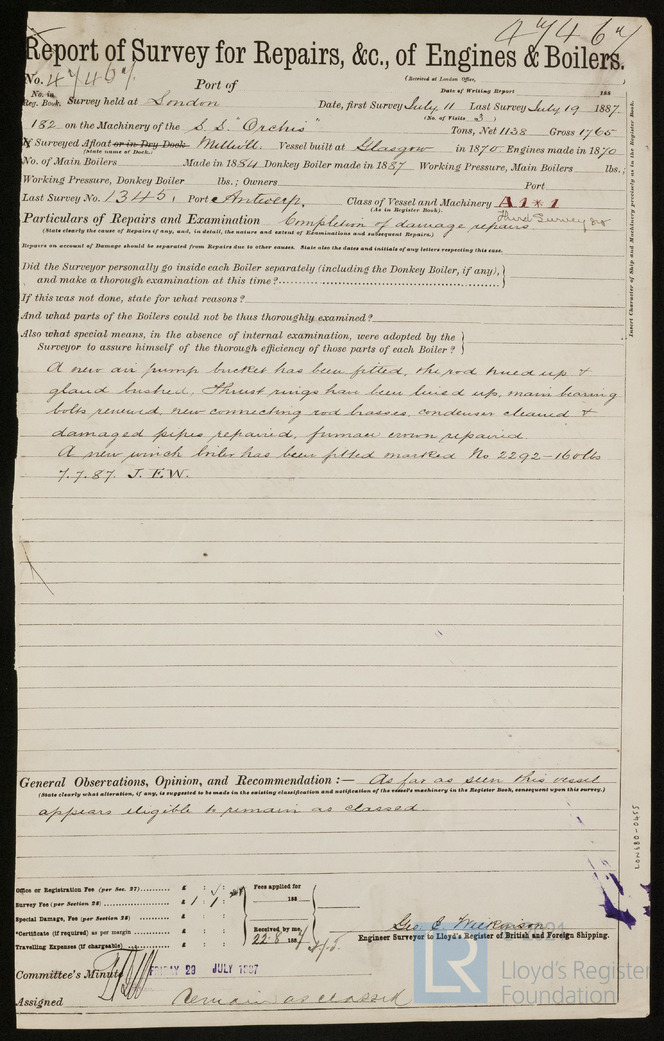 47467
Report of Survey for Repairs, &c., of Engines & Boilers.
No. 47467
Port of
(Received at London Office,
Date of Writing Report 188
No. in Reg. Book. Survey held at London Date, first Survey July 11 Last Survey July 19 1887.
(No. of Visits 3)
182 on the Machinery of the S.S. "Orchis" Tons, Net 1138 Gross 1765
If Surveyed Afloat or in Dry Dock Millwall Vessel built at Glasgow in 1870. Engines made in 1870
(State name of Dock.)
No. of Main Boilers Made in 1884 Donkey Boiler made in 1887 Working Pressure, Main Boilers lbs.;
Working Pressure, Donkey Boiler lbs.; Owners Port
Last Survey No. 1345, Port Antwerp. Class of Vessel and Machinery A1*1
(As in Register Book).
Third Survey
Particulars of Repairs and Examination Completion of damage repairs.
(State clearly the cause of Repairs if any, and, in detail, the nature and extent of Examinations and subsequent Repairs.)
Repairs on account of Damage should be separated from Repairs due to other causes. State also the dates and initials of any letters respecting this case.
Insert Character of Ship and Machinery precisely as in the Register Book.
Did the Surveyor personally go inside each Boiler separately (including the Donkey Boiler, if any),
and make a thorough examination at this time?
If this was not done, state for what reasons?
And what parts of the Boilers could not be thus thoroughly examined?
Also what special means, in the absence of internal examination, were adopted by the
Surveyor to assure himself of the thorough efficiency of those parts of each Boiler?
A new air pump bucket has been fitted, the rod trued up &
gland bushed. Thrust rings have been lined up, main bearing
bolts renewed, new connecting rod brasses, condenser cleaned &
damaged pipes repaired, furnace crown repaired.
A new winch boiler has been fitted marked No 2292–160lbs
7.7.87. J.F.W.
General Observations, Opinion, and Recommendation :— As far as seen this vessel
(State clearly what alteration, if any, is suggested to be made in the existing classification and notification of the vessel's machinery in the Register Book, consequent upon this survey.)
appears eligible to remain as classed.
LON680-0455
Office or Registration Fee (per Sec. 27) £ : :
Survey Fee (per Section 28) £ 1 : 1 :
Special Damage, Fee (per Section 28) £ : :
*Certificate (if required) as per margin £ : :
Travelling Expenses (if chargeable) £ : :
Fees applied for
188
Received by me,
22.8.1887
Geo. E. Wilkinson
Engineer Surveyor to Lloyd's Register of British and Foreign Shipping.
Committee's Minute FRIDAY 29 JULY 1887
Assigned Remain as classed
LR
Lloyd's Register
Foundation